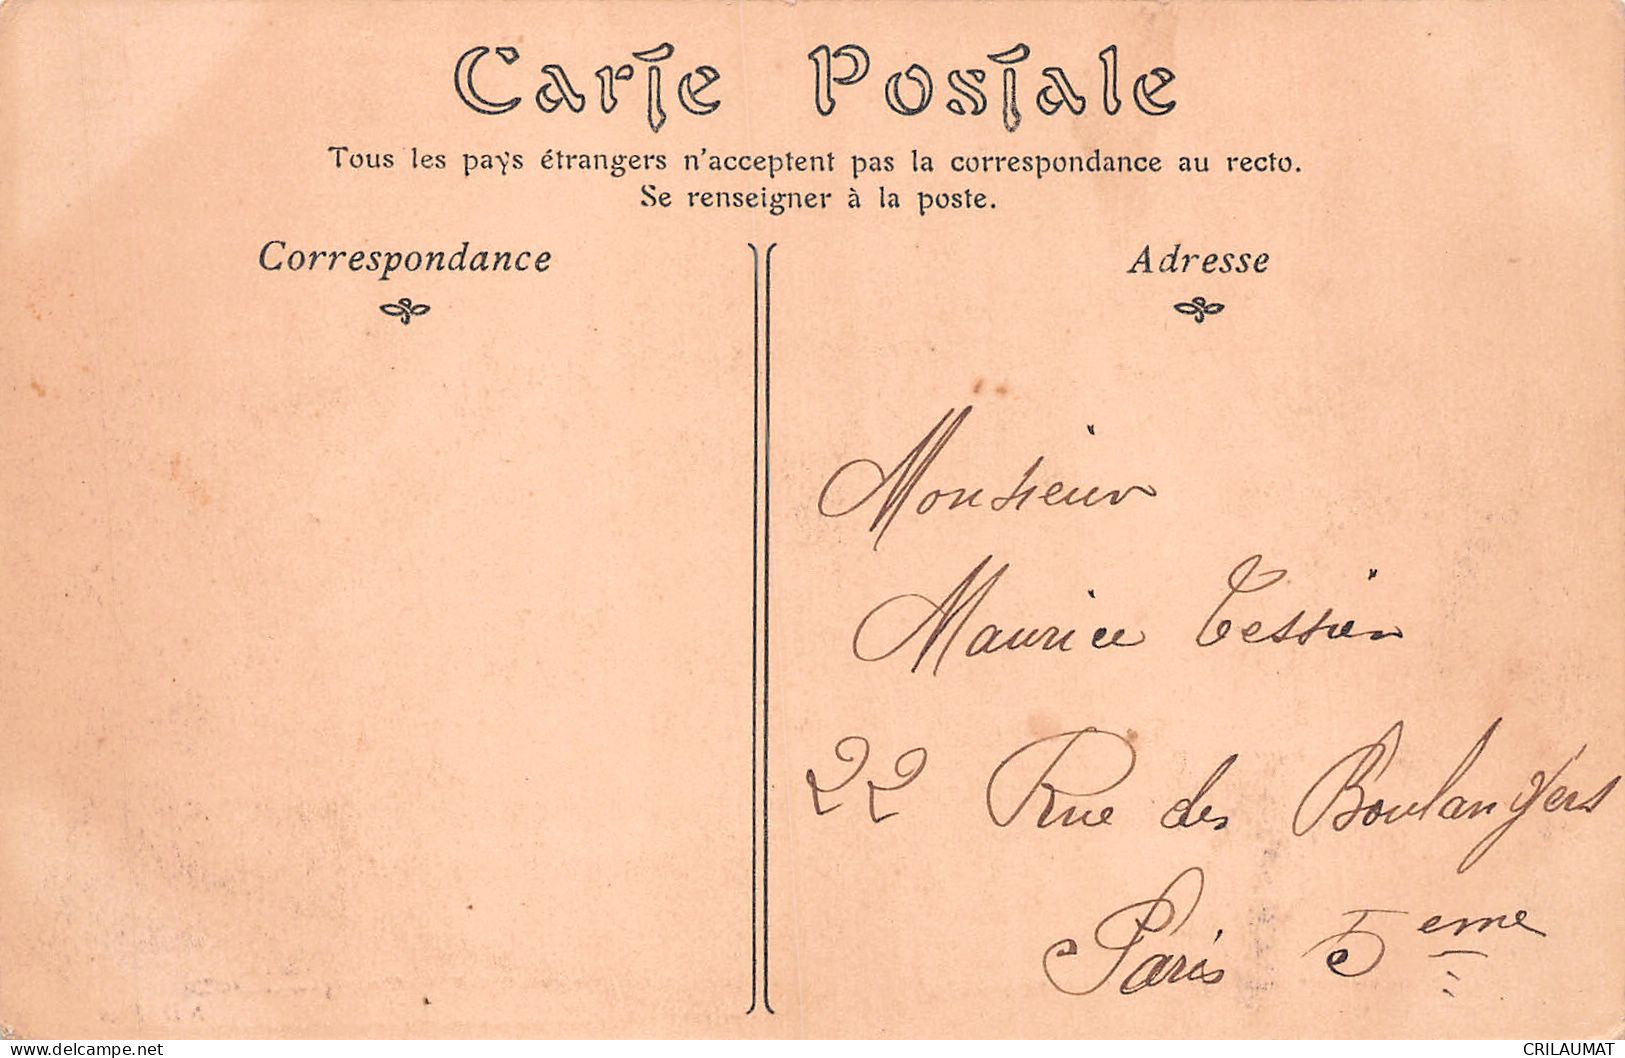 Carte Postale
Tous les pays étrangers n'acceptent pas la correspondance au recto.
Se renseigner à la poste.
Correspondance
Adresse
Monsieur
Maurice Tessier
22 Rue des Boulangers
Paris 5eme
delcampe.net
CRILAUMAT